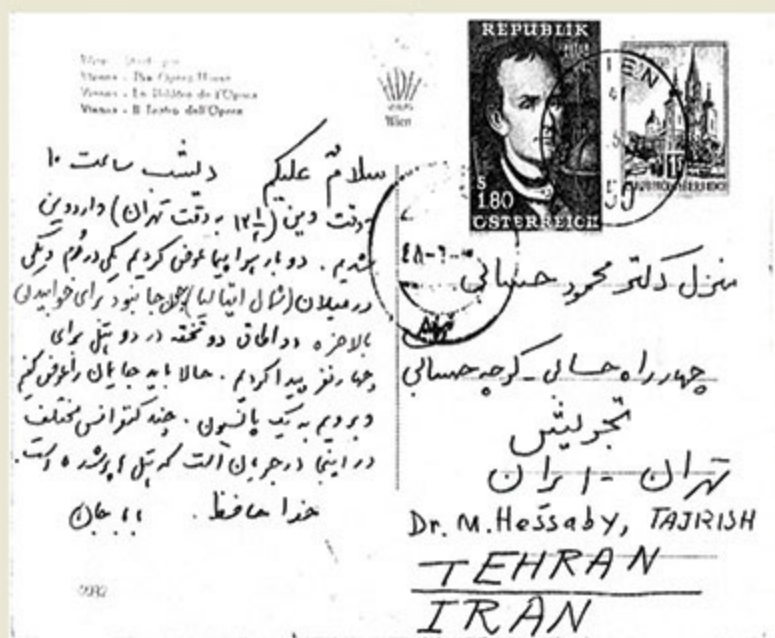 Vienna - The Opera House
Vienna - Le Théâtre de l'Opera
Vienna - Il Teatro dell'Opera
Wien
REPUBLIK
S
1.80
ÖSTERREICH
WIEN
سلامٌ علیکم دیشب ساعت ۱۰
بوقت وین (۱۲½ به وقت تهران) وارد وین
شدیم. دو بار هواپیما عوض کردیم یکی در رُم و یکی
در میلان (شمال ایتالیا) چون جا نبود برای خوابیدن
بالاخره دو اطاق دو تخته در دو هتل برای
چهار نفر پیدا کردیم. حالا باید جایمان را عوض کنیم
و برویم به یک پانسیون. چند کنفرانس مختلف
در اینجا در جریان است که هتل ها پر شده است.
خدا حافظ. بابا جان
منزل دکتر محمود حسابی
چهار راه حسابی - کوچه حسابی
تجریش
تهران - ایران
Dr. M. Hessaby, TAJRISH
TEHRAN
IRAN